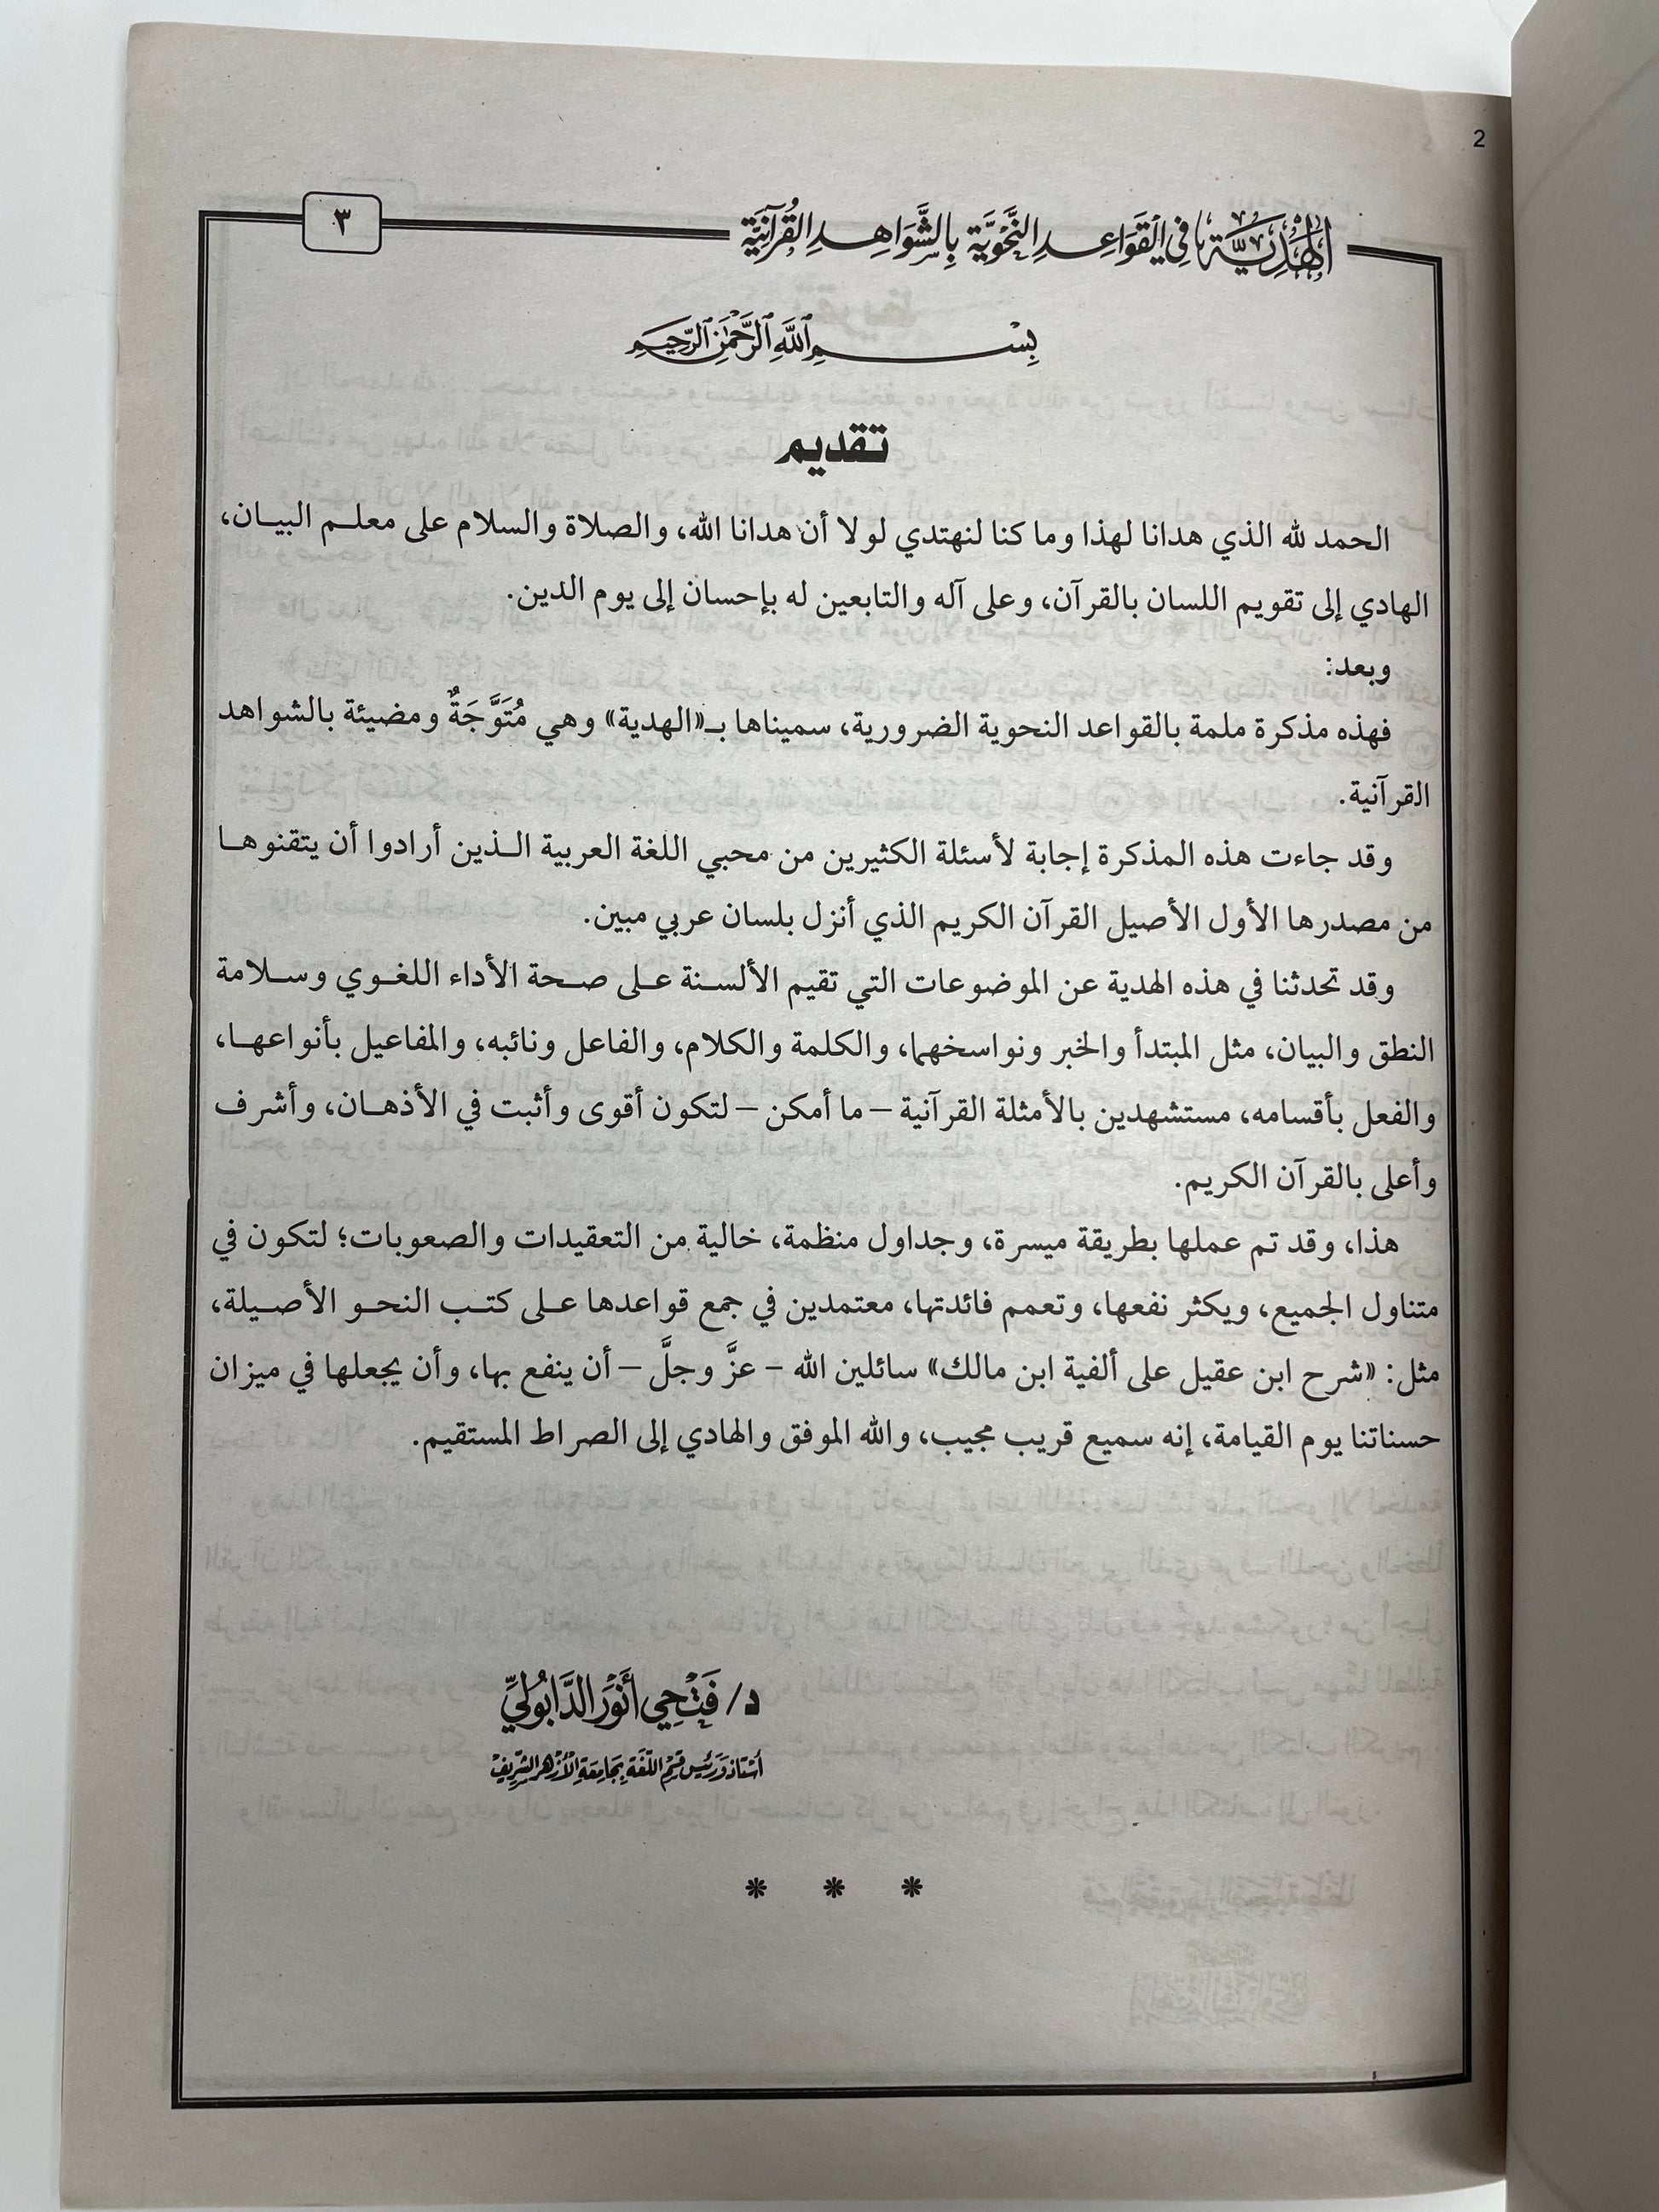 2
٣
الهَدِيَّة في القَوَاعِدِ النَّحْوِيَّة بِالشَّوَاهِدِ القُرآنِيَّة
بِسْمِ اللَّهِ الرَّحْمَٰنِ الرَّحِيمِ
تقديم
الحمد لله الذي هدانا لهذا وما كنا لنهتدي لولا أن هدانا الله، والصلاة والسلام على معلم البيان،
الهادي إلى تقويم اللسان بالقرآن، وعلى آله والتابعين له بإحسان إلى يوم الدين.
وبعد:
فهذه مذكرة ملمة بالقواعد النحوية الضرورية، سميناها بـ«الهدية» وهي مُتَوَّجَةٌ ومضيئة بالشواهد
القرآنية.
وقد جاءت هذه المذكرة إجابة لأسئلة الكثيرين من محبي اللغة العربية الذين أرادوا أن يتقنوها
من مصدرها الأول الأصيل القرآن الكريم الذي أنزل بلسان عربي مبين.
وقد تحدثنا في هذه الهدية عن الموضوعات التي تقيم الألسنة على صحة الأداء اللغوي وسلامة
النطق والبيان، مثل المبتدأ والخبر ونواسخهما، والكلمة والكلام، والفاعل ونائبه، والمفاعيل بأنواعها،
والفعل بأقسامه، مستشهدين بالأمثلة القرآنية – ما أمكن – لتكون أقوى وأثبت في الأذهان، وأشرف
وأعلى بالقرآن الكريم.
هذا، وقد تم عملها بطريقة ميسرة، وجداول منظمة، خالية من التعقيدات والصعوبات؛ لتكون في
متناول الجميع، ويكثر نفعها، وتعمم فائدتها، معتمدين في جمع قواعدها على كتب النحو الأصيلة،
مثل: «شرح ابن عقيل على ألفية ابن مالك» سائلين الله – عزَّ وجلَّ – أن ينفع بها، وأن يجعلها في ميزان
حسناتنا يوم القيامة، إنه سميع قريب مجيب، والله الموفق والهادي إلى الصراط المستقيم.
د/ فَتْحِي أَنْوَر الدَّابُولِيّ
أُسْتَاذ وَرَئِيس قِسْمِ اللُّغَةِ بِجَامِعَةِ الأَزْهَر الشَّرِيفِ
* * *